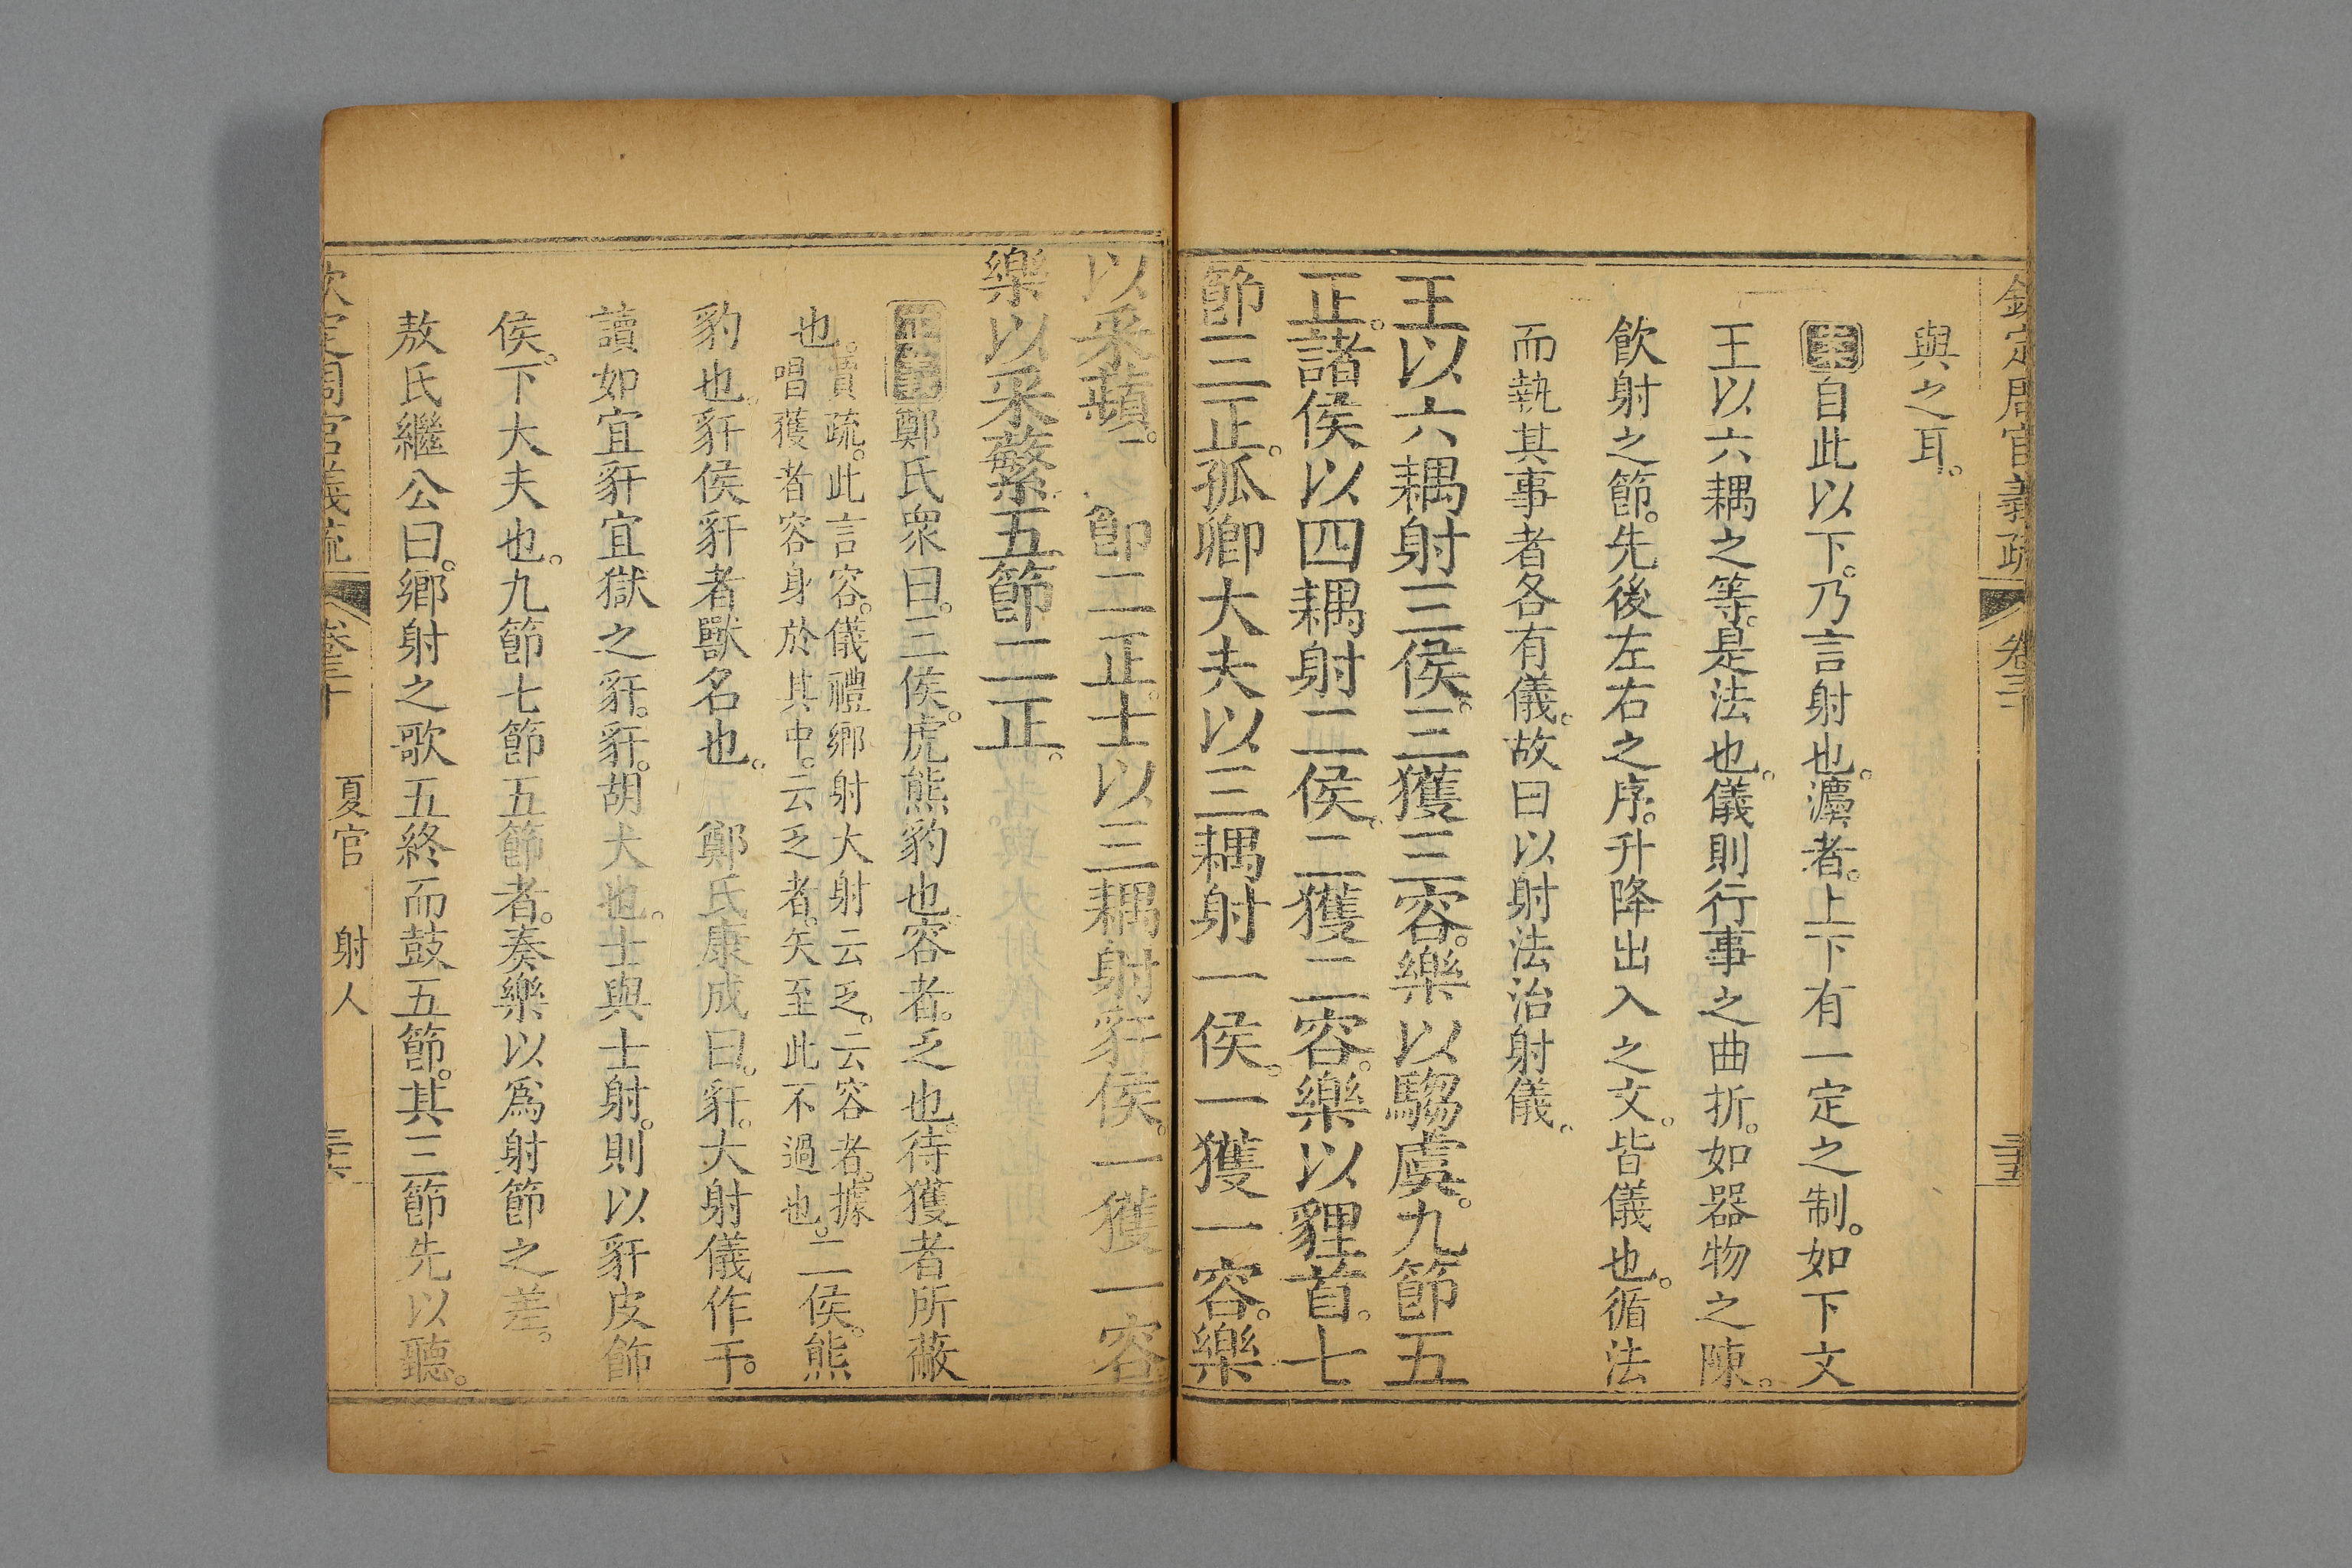 欽定周官義疏 卷三十 三五
與之耳。
案自此以下。乃言射也。灋者。上下有一定之制。如下文
王以六耦之等。是法也。儀則行事之曲折。如器物之陳。
飲射之節。先後左右之序。升降出入之文。皆儀也。循法
而執其事者各有儀。故曰以射法治射儀。
王以六耦射三侯。三獲三容。樂以騶虞。九節五
正。諸侯以四耦射二侯。二獲二容。樂以貍首。七
節三正。孤卿大夫以三耦射一侯。一獲一容。樂
以采蘋。五節二正。士以三耦射豻侯。一獲一容
樂以采蘩五節二正。
正義鄭氏衆曰。三侯。虎熊豹也。容者。乏也。待獲者所蔽
也。賈疏。此言容。儀禮鄉射大射云乏。云容者。據
唱獲者容身於其中。云乏者。矢至此不過也。二侯。熊
豹也。豻侯豻者獸名也。 鄭氏康成曰。豻。大射儀作干。
讀如宜豻宜獄之豻。豻。胡犬也。士與士射。則以豻皮飾
侯。下大夫也。九節七節五節者。奏樂以爲射節之差。
敖氏繼公曰。鄉射之歌五終而鼓五節。其三節先以聽。
欽定周官義疏 卷三十 夏官 射人 三六